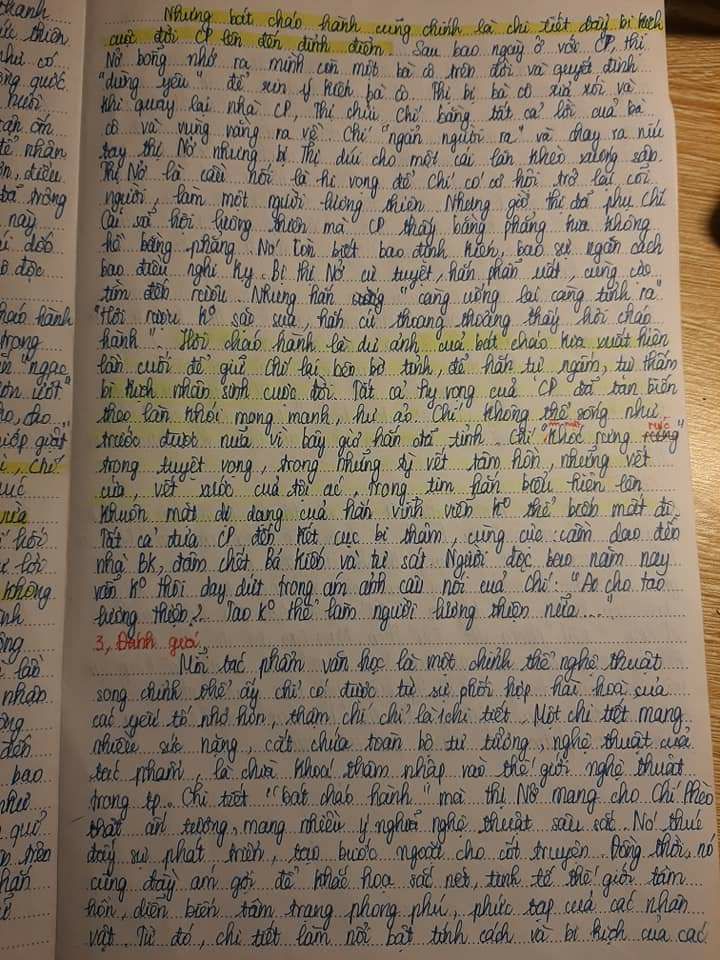 thanh
ức thiên
như có
ông quét
nuôi
để nhân
n, điều
trong
này
độc
háo hành
trong
"ngạc
Nhưng bát cháo hành cũng chính là chi tiết đẩy bi kịch
cuộc đời CP lên đến đỉnh điểm. Sau bao ngày ở với CP, thị
Nở bỗng nhớ ra mình còn một bà cô trên đời và quyết định
"dừng yêu" để xin ý kiến bà cô. Thị bị bà cô xỉa xói và
khi quay lại nhà CP, Thị chửi Chí bằng tất cả lời của bà
cô và vùng vằng ra về. Chí "ngẩn người ra" và chạy ra níu
tay thị Nở nhưng bị Thị dúi cho một cái lăn khèo xuống sân.
Thị Nở là cầu nối, là hi vọng để Chí có cơ hội trở lại cõi
người, làm một người lương thiện. Nhưng giờ, thị đã phụ Chí.
Cái xã hội lương thiện mà CP thấy bằng phẳng kia không
hề bằng phẳng. Nó còn biết bao định kiến, bao sự ngăn cách
bao điều nghi kỵ. Bị thị Nở cự tuyệt, hắn phẫn uất, cùng cào
tìm đến rượu. Nhưng hắn "càng uống lại càng tỉnh ra"
"Hơi rượu k° sặc sụa, hắn cứ thoang thoảng thấy hơi cháo
hành". Hơi cháo hành là dư ảnh của bát cháo kia xuất hiện
lần cuối để giữ Chí lại bên bờ tỉnh, để hắn tự ngẫm, tự thấm
bi kịch nhân sinh cuộc đời. Tất cả hy vọng của CP đã tan biến
theo làn khói mong manh, hư ảo. Chí không thể sống như
trước được nữa vì bây giờ hắn đã tỉnh. Chí "khóc rưng rức"
trong tuyệt vọng, trong những tỳ vết tâm hồn, những vết
cứa, vết xước của tội ác, trong tim hắn biểu hiện lên
khuôn mặt dị dạng của hắn vĩnh viễn k° thể biến mất đi.
Tất cả đưa CP đến kết cục bi thảm, cùng cực: cầm dao đến
nhà BK, đâm chết Bá Kiến và tự sát. Người đọc bao năm nay
vẫn k° thôi day dứt trong ám ảnh câu nói của Chí: "Ai cho tao
lương thiện? Tao k° thể làm người lương thiện nữa..."
3, Đánh giá
Mỗi tác phẩm văn học là một chỉnh thể nghệ thuật
song chỉnh thể ấy chỉ có được từ sự phối hợp hài hoà của
các yếu tố nhỏ hơn, thậm chí chỉ là 1 chi tiết. Một chi tiết mang
nhiều sức nặng, cất chứa toàn bộ tư tưởng, nghệ thuật của
tác phẩm, là chìa khoá thâm nhập vào thế giới nghệ thuật
trong tp. Chi tiết "bát cháo hành" mà thị Nở mang cho Chí Phèo
thật ấn tượng, mang nhiều ý nghĩa nghệ thuật sâu sắc. Nó thúc
đẩy sự phát triển, tạo bước ngoặt cho cốt truyện. Đồng thời, nó
cũng đầy ám gợi để khắc hoạ sắc nét, tinh tế thế giới tâm
hồn, diễn biến tâm trạng phong phú, phức tạp của các nhân
vật. Từ đó, chi tiết làm nổi bật tính cách và bi kịch của các